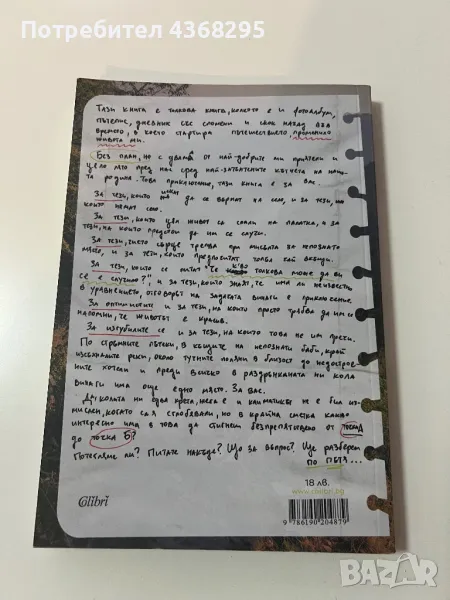 Потребител 4368295
Тази книга е толкова книга, колкото е и фотоалбум,
пътепис, дневник със спомени и скок назад във
времето, в което стартира пътешествието, променило
живота ми.
Без план, но с двама от най-добрите ми приятели и
цяло лято пред нас сред най-затънтените кътчета на наша-
та родина. Това приключение, тази книга е за вас.
За тези, които искат да се върнат на село, и за тези, но
които нямат село.
За тези, които цял живот са спали на палатка, и за
тези, на които предстои да им се случи.
За тези, чието сърце трепва при мисълта за непознато
място, и за тези, които предпочитат топъл хай вкъщи.
За тези, които се питат "Че к'во толкова може да ви
се е случило?", и за тези, които знаят, че има ли неизвестни
в уравнението, отговорът на задачата винаги е приключение.
За оптимистите и за тези, на които просто трябва да им се
напомни, че животът е красив.
За изгубилите се и за тези, на които това не им пречи.
По стръмните пътеки, в къщите на непознати баби, край
изсъхналите реки, около тучните поляни в близост до недострое-
ните хотели и преди всичко в раздрънканата ни кола
винаги има още едно място. За вас.
Да, колата ни едва крета, нея и климатикът не е бил из-
мислен, когато са я сглобявали, но в крайна сметка какво
интересно има в това да стигнем безпрепятствено от точка А
до точка Б?
Потегляме ли? Питате накъде? Що за въпрос? Ще разберем
по пътя...
Colibri
18 лв.
www.colibri.bg
9 786190 204879
BAZAR